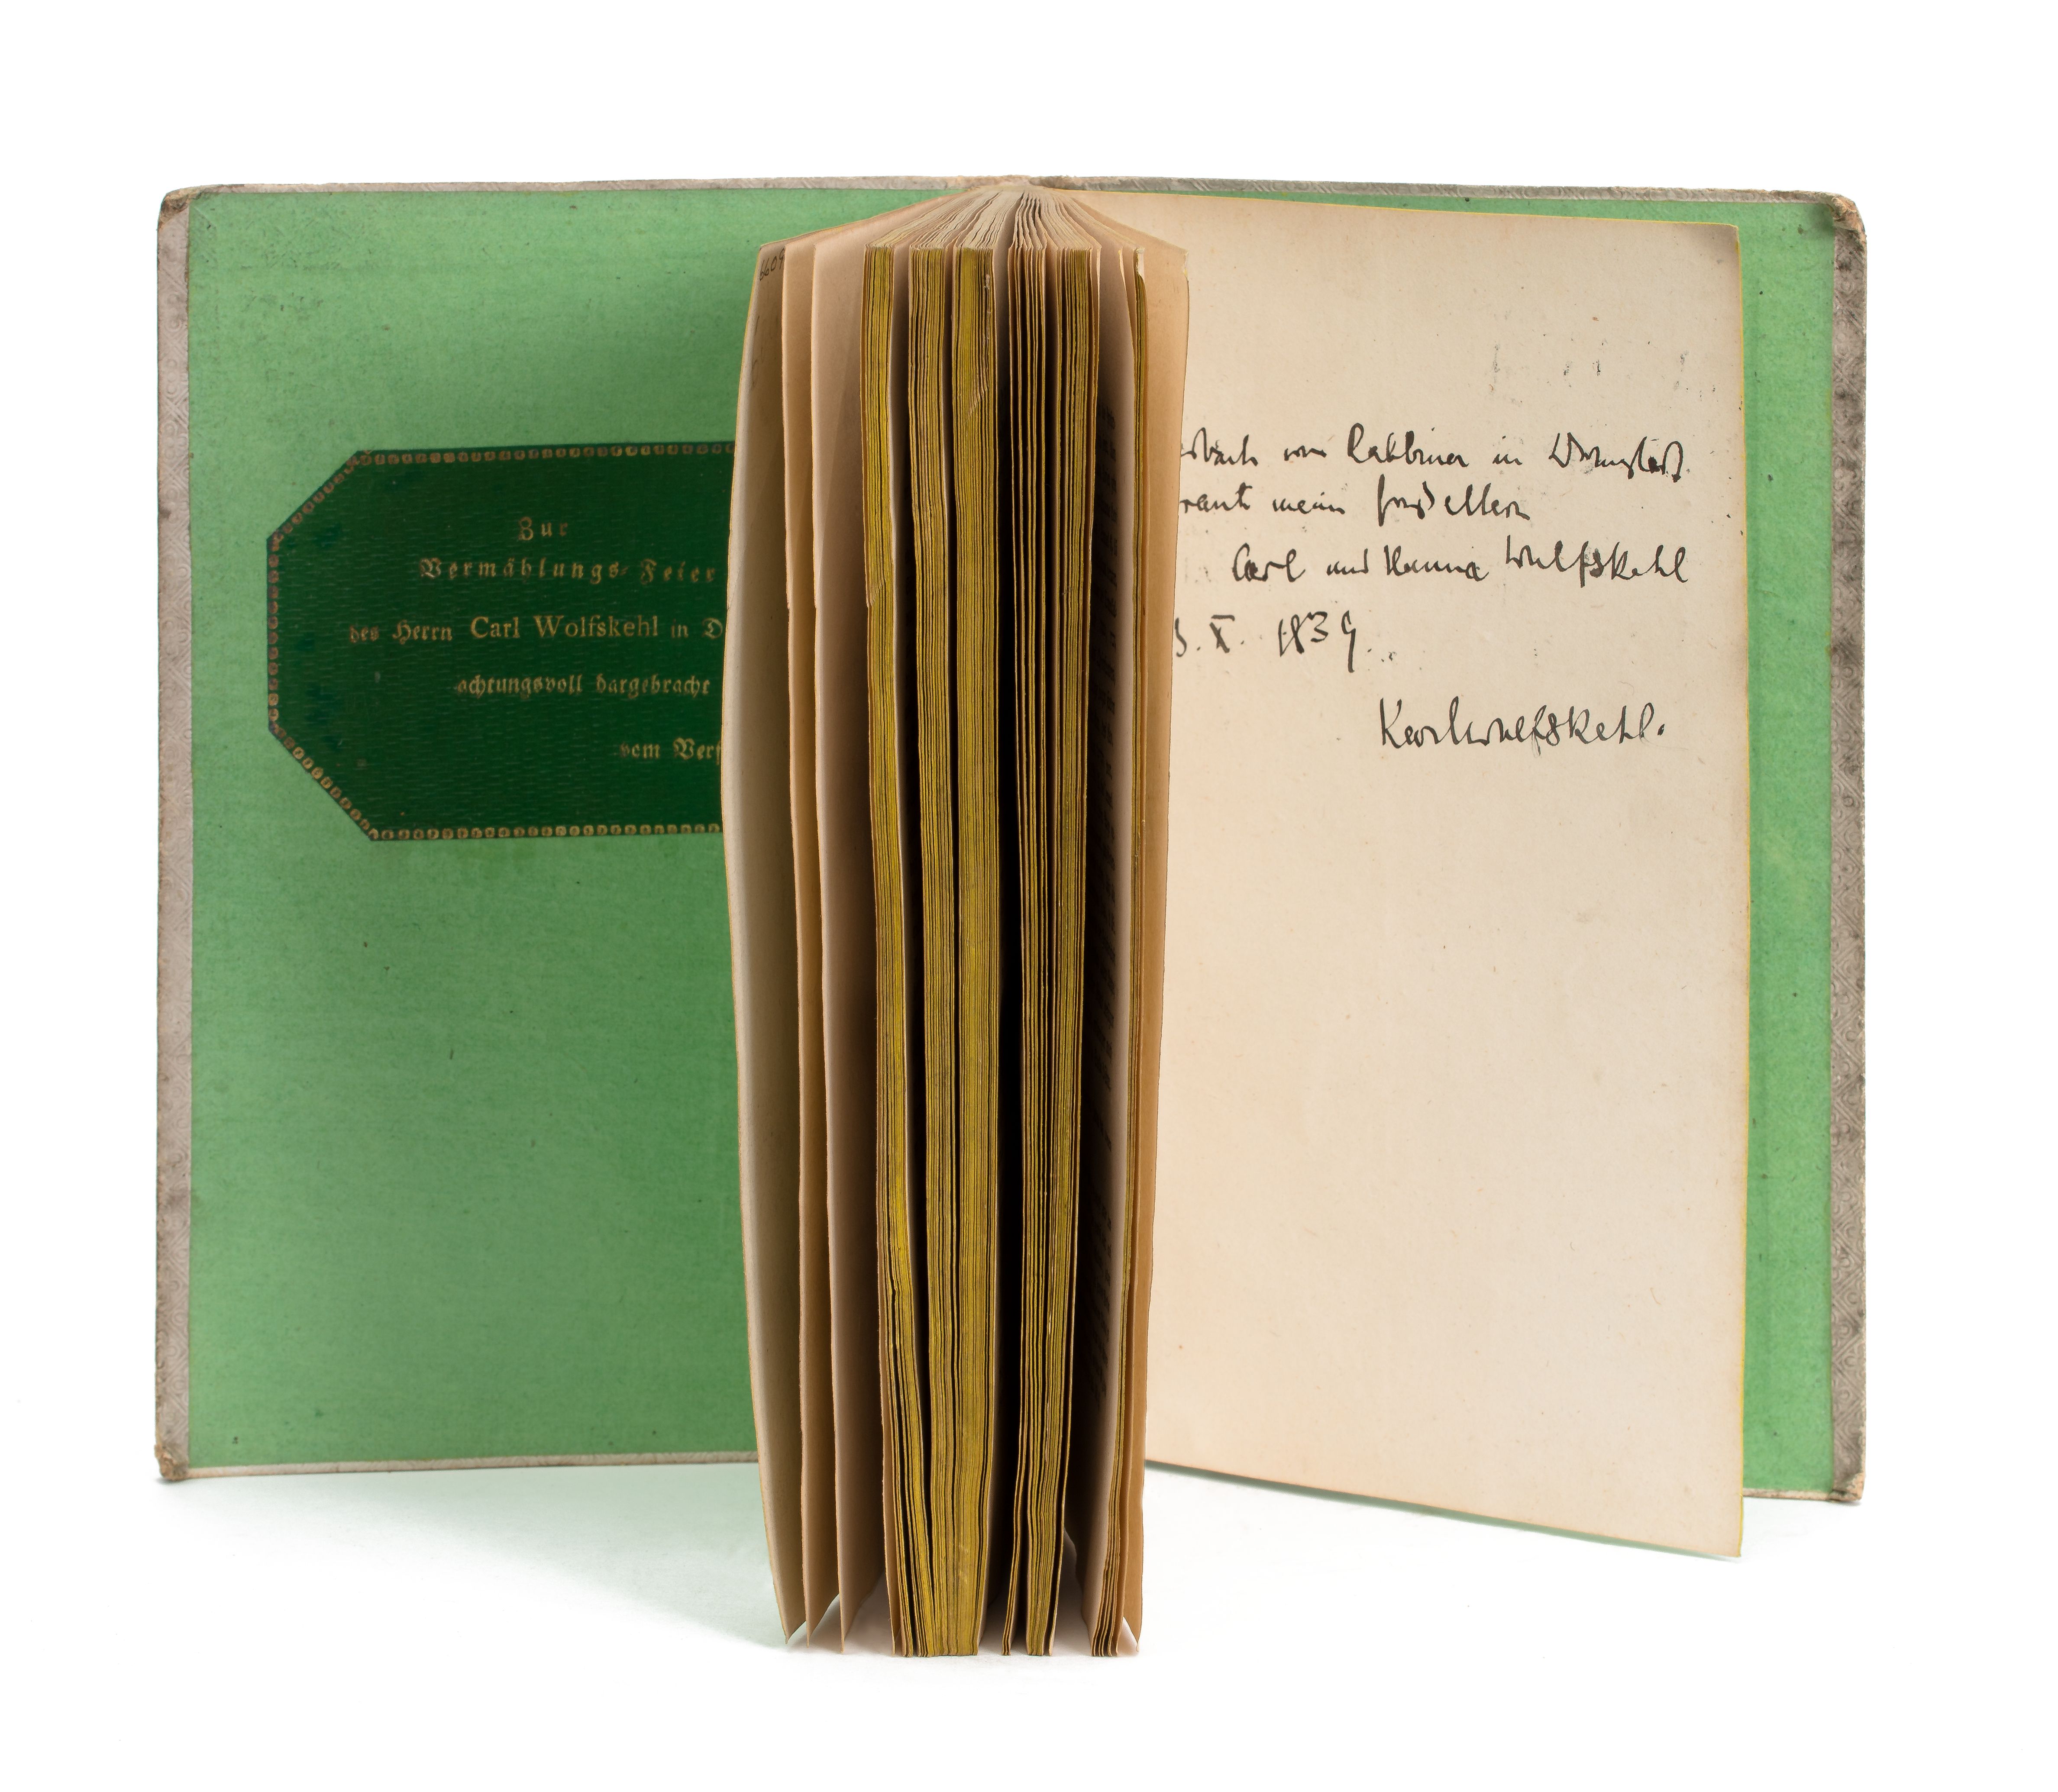 Zur
Vermählungs-Feier
des Herrn Carl Wolfskehl in D
achtungsvoll dargebracht
vom Verf
6609
von Rabbiner in Darmstadt
mein Großeltern
Carl und Hanna Wolfskehl
3. X. 1839.
Karl Wolfskehl.